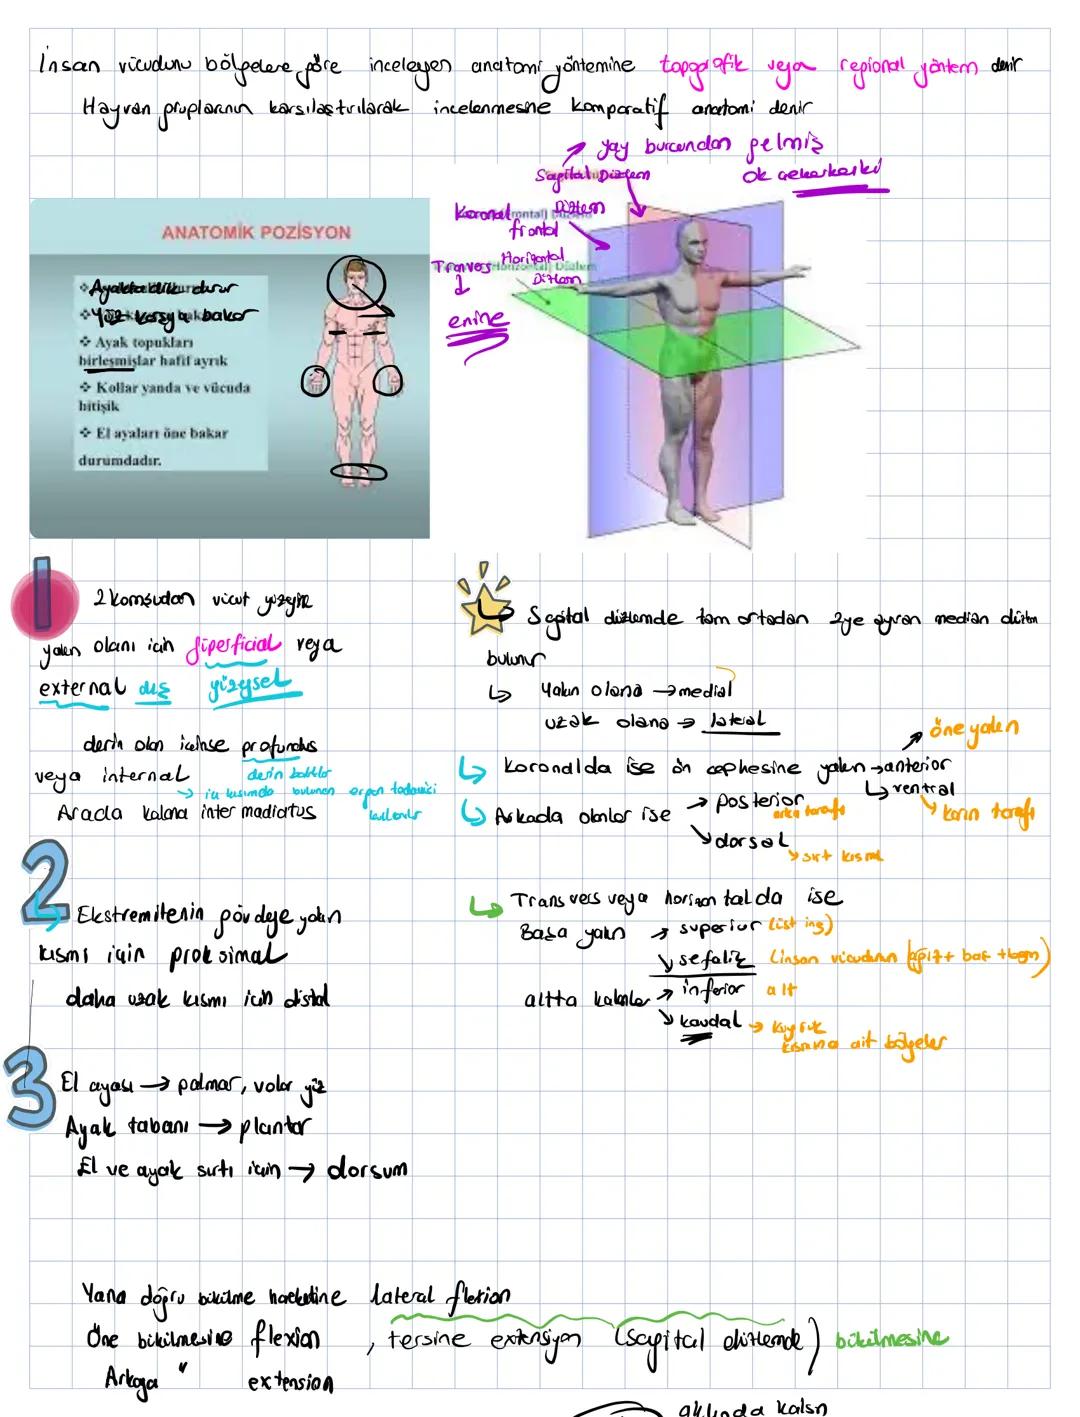 İnsan vücudunu bölgelere göre inceleyen anatomi yöntemine topografik veya regional yöntem denir
Hayvan gruplarının karşılaştırılarak incelenmesine komparatif anatomi denir
yay burcundan gelmiş
ok çekerkenki
Sagital Düzlem
Koronal Düzlem
frontal
Tranvers Horizontal
Düzlem
enine
ANATOMİK POZİSYON
Ayakta dik durur
Yüz karşıya bakar
❖ Ayak topukları
birleşmişlar hafif ayrık
❖ Kollar yanda ve vücuda
bitişik
❖ El ayaları öne bakar
durumdadır.
1
2 komşudan vücut yüzeyine
yakın olanı için süperficial veya
external dış yüzeysel
derin olan içinse profundus
veya internal derin
iç kısımda bulunan organ
Arada kalana inter madiartus
2
Ekstremitenin gövdeye yakın
kısmı için proksimal
daha uzak kısmı için distal
3
El ayası → palmar, volar yüz
Ayak tabanı → plantar
El ve ayak sırtı için → dorsum
Sagital düzlemde tam ortadan 2ye ayıran median düzlem
bulunur
Yakın olana → medial
uzak olana → lateral
Koronalda ise ön cephesine yakın → anterior
öne yakın
ventral
karın tarafı
Arkada olanlar ise → posterior
arka tarafı
dorsal
sırt kısmı
Transvers veya horizontalda ise
Başa yakın → superiur (üst
sefalik (insan vücudunun + baş +
altta kalanlar → inferior alt
kaudal → kuyruk
kısmına ait bölgeler
Yana doğru bükülme hareketine lateral flexion
Öne bükülmesine flexion , tersine extensiyon (sagital düzlemde) bükülmesine
Arkaya " extension
aklında kalsın